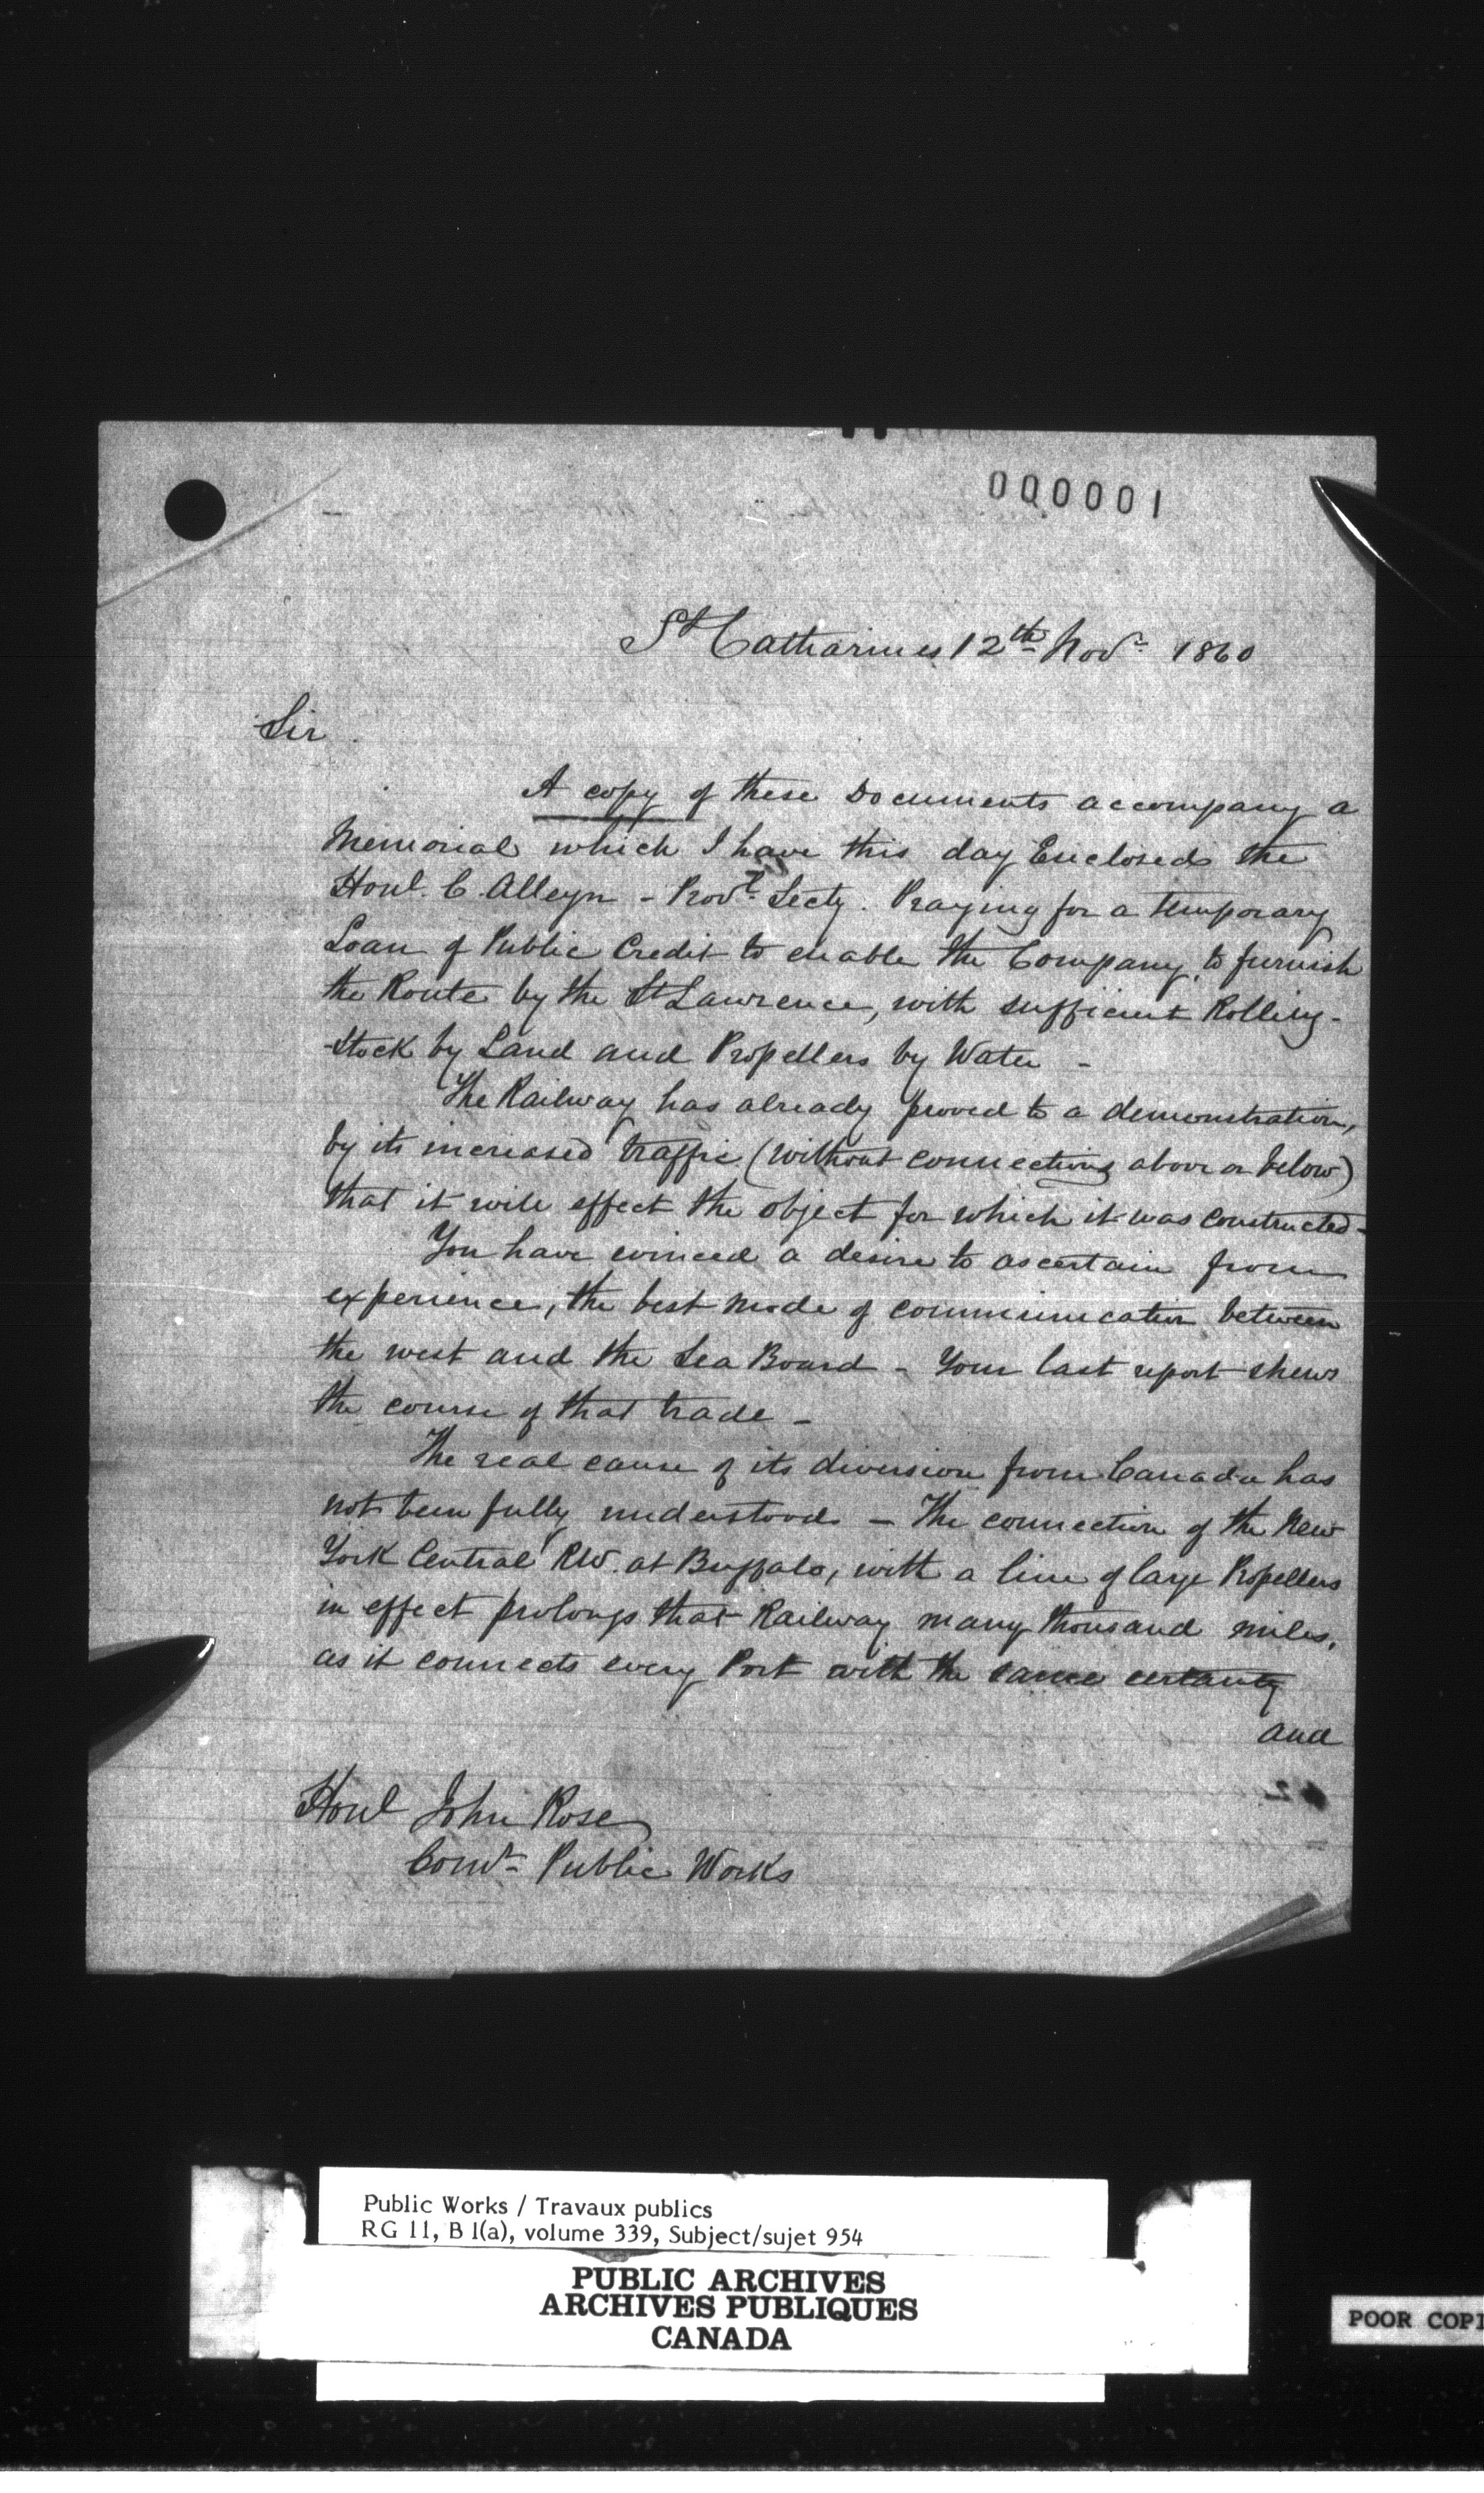 000001
St Catharines 12th Novr 1860
Sir
A copy of these Documents accompany a
Memorial which I have this day Enclosed the
Honl. C. Alleyn - Provl. Secty. Praying for a temporary
Loan of Public Credit to enable the Company, to furnish
the Route by the St Lawrence, with sufficient Rolling-
-stock by Land and Propellers by Water -
The Railway has already proved to a demonstration,
by its increased traffic (without connections above or below)
that it will effect the object for which it was constructed-
You have evinced a desire to ascertain from
experience, the best mode of communication between
the west and the Sea Board - Your last report shews
the course of that trade -
The real cause of its diversion from Canada has
not been fully understood - The connection of the New
York Central RW. at Buffalo, with a line of large Propellers
in effect prolongs that Railway many thousand miles,
as it connects every Port with the same certainty
and
Honl John Rose
Comr Public Works
Public Works / Travaux publics
RG 11, B 1(a), volume 339, Subject/sujet 954
PUBLIC ARCHIVES
ARCHIVES PUBLIQUES
CANADA
POOR COPI